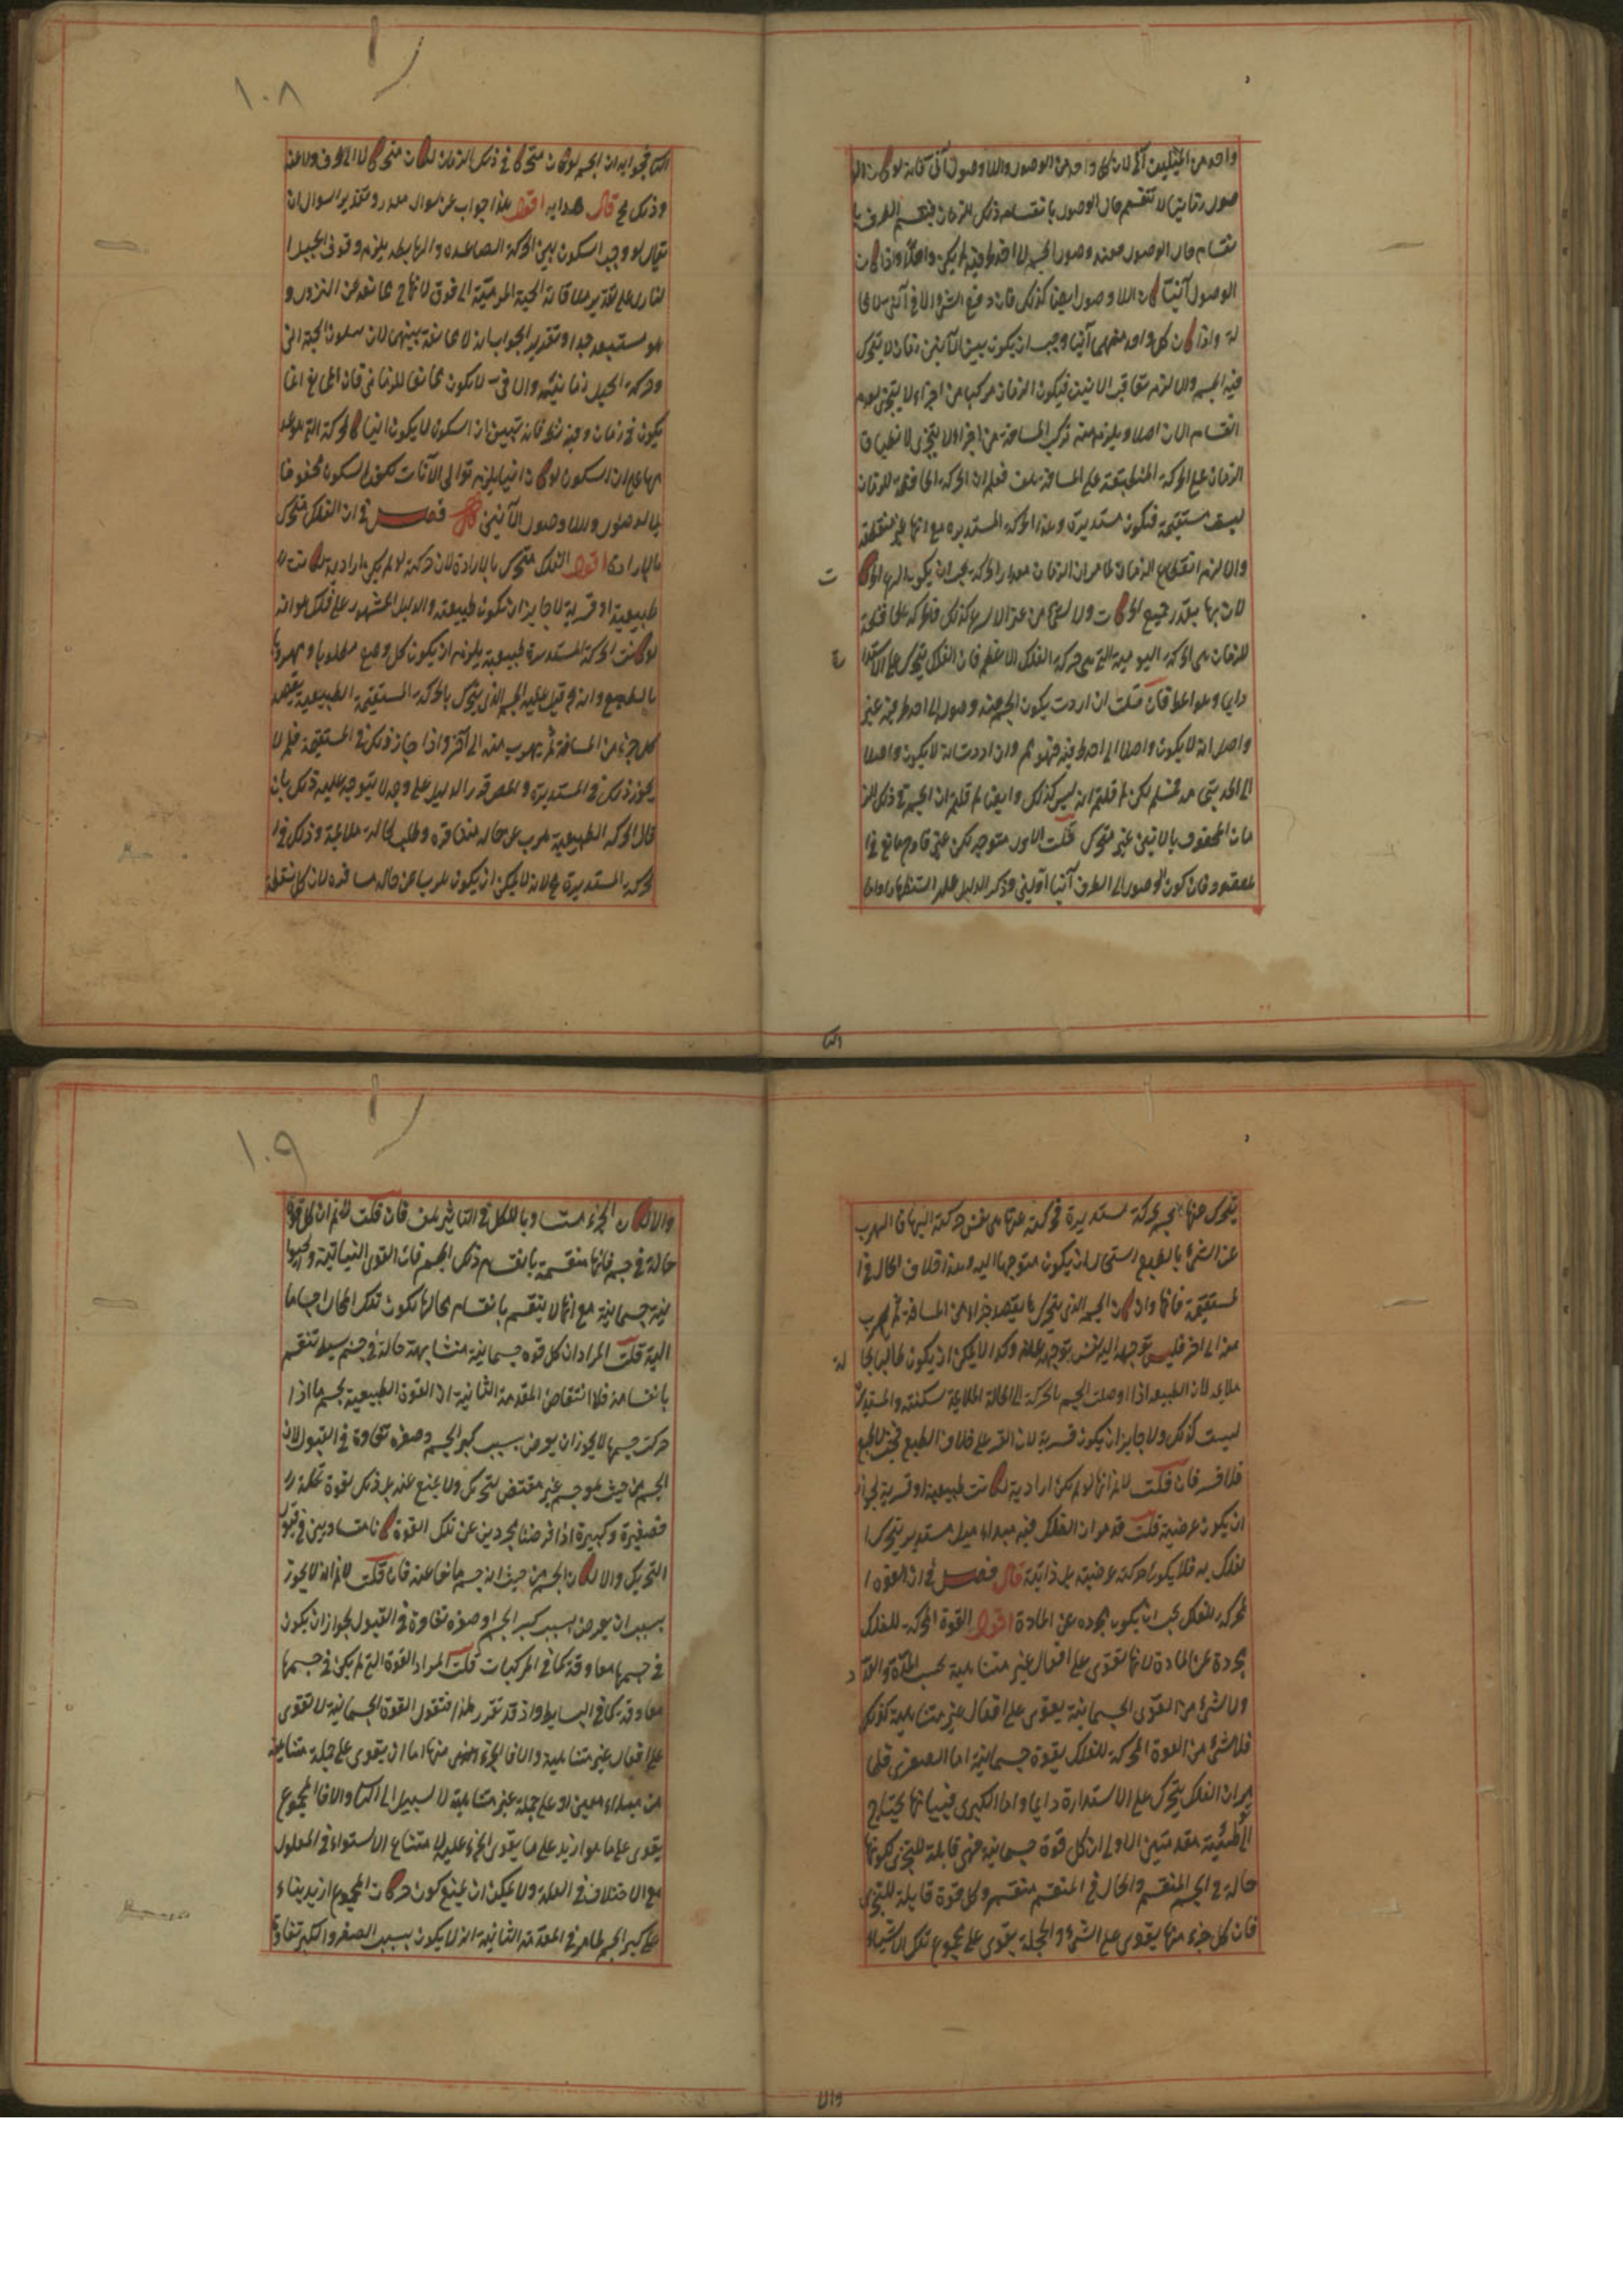 واحد من الميلين آنى لان كل واحد من الوصول واللاوصول آنى فانه لو كان الو
صول زمانيا لانقسم حال الوصول بانقسام ذلك الزمان فينقسم الطرف با
نقسام حال الوصول فعند وصول الجسم الى احد طرفيه لم يكن واصلا واذا كان
الوصول آنيا كان اللاوصول ايضا كذلك فان دفع الشئ والا فى آنى
له واذا كان كل واحد منهما آنيا وجب ان يكون بين الآنين زمان لا يتحرك
فيه الجسم والا لزم تعاقب الانين فيكون الزمان مركبا من اجزاء لا يتجزى لعدم
انقسام الان اصلا ويلزم منه تركب المسافة من اجزاء لا يتجزى لانطباق
الزمان على الحركة المنطبقة على المسافة هف فعلم ان الحركة الحافظة للزمان
ليست مستقيمة فتكون مستديرة وهذا الحركة المستديرة مع انها غير منقطعة
والا لزم انقطاع الزمان لما مر ان الزمان مقدار الحركة يجب ان يكون اسرع الحركا
ت
لان بها يقدر جميع الحركات ولا شئ من غير الاسرع كذلك فالحركة الحافظة
للزمان هى الحركة اليومية التى هى حركة الفلك الاعظم فان الفلك يتحرك على الاستدا
رة
دايما وهو المط فان قلت ان اردت بكون الجسم عند وصوله الى احد طرفيه غير
واصل انه لا يكون واصلا الى احد طرفيه فهو مم وان اردت انه لا يكون واصلا
الى الحد بتى مه فمسلم لكن لم قلتم انه ليس كذلك وايضا لم قلتم ان الجسم فى ذلك الز
مان المحفوف بالانين غير متحرك قلت الاول متوجه لكن غير قادح مانع فى ا
لمقصود فان كون الوصول الى الطرف آنيا اولى وذكر الدليل عليه استظهار واما
الثا
الثا فجوابه ان الجسم لو كان متحركا فى ذلك الزمان لكان متحركا لا الى الطرف ولا عنه
وذلك مح قال هدايه اقول هذا جواب عن سوال مقدر وتقدير السوال ان
يقال لو وجب السكون بين الحركة الصاعدة والهابطة يلزم وقوف الجبل ا
لنازل على تقدير ملاقاته الحبة المرمية الى فوق لانها ح مانعه عن النزول و
هو مستبعد جدا وتقدير الجواب انه لا مانعة بينهما لان سكون الحبة انى
وحركة الجبل زمانية والانى لا يكون مانعا للزمانى فان المانع انما
يكون فى زمان وفيه نظر فانه تبين ان السكون لا يكون انيا كالحركة التى هو عد
مها على ان السكون لو كان انيا يلزم توالى الآنات لكون السكون محفوفا
بالوصول واللاوصول الآنيين فصل فى ان الفلك متحرك
بالارادة اقول الفلك متحرك بالارادة لان حركته لو لم يكن ارادية لكانت ا
طبيعية او قسرية لا جايز ان تكون طبيعية والدليل المشهور على ذلك هو انه
لو كانت الحركة المستديرة طبيعية يلزم ان يكون كل وضع مطلوبا ومهروبا
بالطبع وانه مح قيل عليه الجسم الذى يتحرك بالحركة المستقيمة الطبيعية يقصد
كل جزء من المسافة ثم يهرب منه الى آخر واذا جاز ذلك فى المستقيمة فلم لا
يجوز ذلك فى المستديرة والمص قرر الدليل على وجه لا يتوجه عليه ذلك بان
قال الحركة الطبيعية هرب عن حاله منافرة وطلب لحالة ملائمة وذلك فى ا
لحركة المستديرة مح لانه لا يمكن ان يكون للهرب عن حاله منافره لان كل نقطة
١٠٨
يتحرك عنها الجسم بحركة مستديرة فحركته عنها هى نفس حركته اليها فان الهرب
عن الشئ بالطبع استحال ان يكون متوجها اليه وهذا خلاف الحال فى ا
لمستقيمة فانها وان كان الجسم الذى يتحرك بها يقصد جزاء من المسافة ثم يهرب
منه الى اخر فليس توجهه اليه نفس توجهه عنه وكذا لا يمكن ان يكون طالبا لحا
لة
ملايمة لان الطبيعة اذا اوصلت الجسم بالحركة الى الحالة الملايمة سكنته والمستديرة
ليست كذلك ولا جايز ان يكون قسرية لان القسر على خلاف الطبع فحيث لا طبع
فلا قسر فان قلت لانم انها لو لم تكن ارادية لكانت طبيعية او قسرية لجواز
ان يكون عرضية قلت قد مر ان الفلك فيه مبداء ميل مستدير يتحرك ا
لفلك به فلا يكون حركته عرضية بل ذاتية قال فصل فى ان القوه ا
لمحركة للفلك يجب ان يكون مجرده عن المادة اقول القوة المحركة للفلك
مجردة عن المادة لانها تقوى على افعال غير متناهية بحسب المدة والعد
د
ولا شئ من القوى الجسمانية يقوى على افعال غير متناهية كذلك
فلا شئ من القوة المحركة للفلك بقوة جسمانية اما الصغرى فلما
مر ان الفلك يتحرك على الاستدارة دايما واما الكبرى فبيانها يحتاج
الى توطئة مقدمتين الاولى ان كل قوة جسمانية فهى قابلة للتجزى لكونها
حالة فى الجسم المنقسم والحال فى المنقسم منقسم وكل قوة قابلة للتجزى
فان كل جزء منها يقوى على الشئ والجملة يقوى على مجموع تلك الاشياء
والا
والا لكان الجزء مساويا للكل فى التاثير هف فان قلت لانم ان كل قوة
حالة فى جسم فانها منقسمة بانقسام ذلك الجسم فان القوى النباتية والحيوا
نية جسمانية مع انها لا ينقسم بانقسام محالها لكون تلك المحال اجساما
الية قلت المراد ان كل قوه جسمانية متشابهة حالة فى جسم بسيط تنقسم
بانقسامه فلا انتقاض المقدمة الثانية ان القوة الطبيعية لجسم ما اذا
حركت جسمها لا يجوز ان يعرض بسبب كبر الجسم وصغره تفاوت فى القبول لان
الجسم من حيث هو جسم غير مقتض لتحريك ولا يمنع عنه بل ذلك لقوة تحله
فصغيرة وكبيرة اذا فرضنا مجردين عن تلك القوة كانا متساويين فى قبول
التحريك والا لكان الجسم من حيث انه جسم مانعا عنه فان قلت لانم انه لا يجوز
بسبب ان يعرض بسبب كبر الجسم وصغره تفاوت فى القبول لجواز ان يكون
فى جسمها معاوقة كما فى المركبات قلت المراد القوة التى لم يكن فى جسمها
معاوقة كما فى البسايط واذ قد تقرر هذا فنقول القوة الجسمانية لا تقوى
على افعال غير متناهية والا فالجزء منها اما ان يقوى على جملة متناهية
من مبداء معين او على جملة غير متناهية لا سبيل الى الثا والا فالمجموع
يقوى على ما هو ازيد على ما يقوى الجزء عليه لامتناع الاستواء فى المعلول
مع الاختلاف فى العلة ولا يمكن ان يمنع كون حركات المجموع ازيد بناء
على كبر الجسم لما مر فى المقدمة الثانية انه لا يكون بسبب الصغر والكبر تفاوت
١٠٩